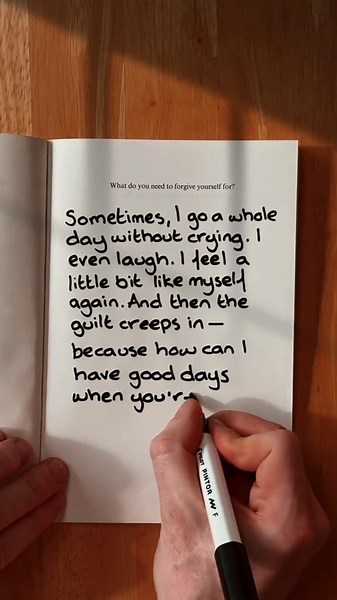 What do you need to forgive yourself for?
Sometimes, I go a whole
day without crying. I
even laugh. I feel a
little bit like myself
again. And then the
guilt creeps in—
because how can I
have good days
when you'r
PILOT PINTOR F